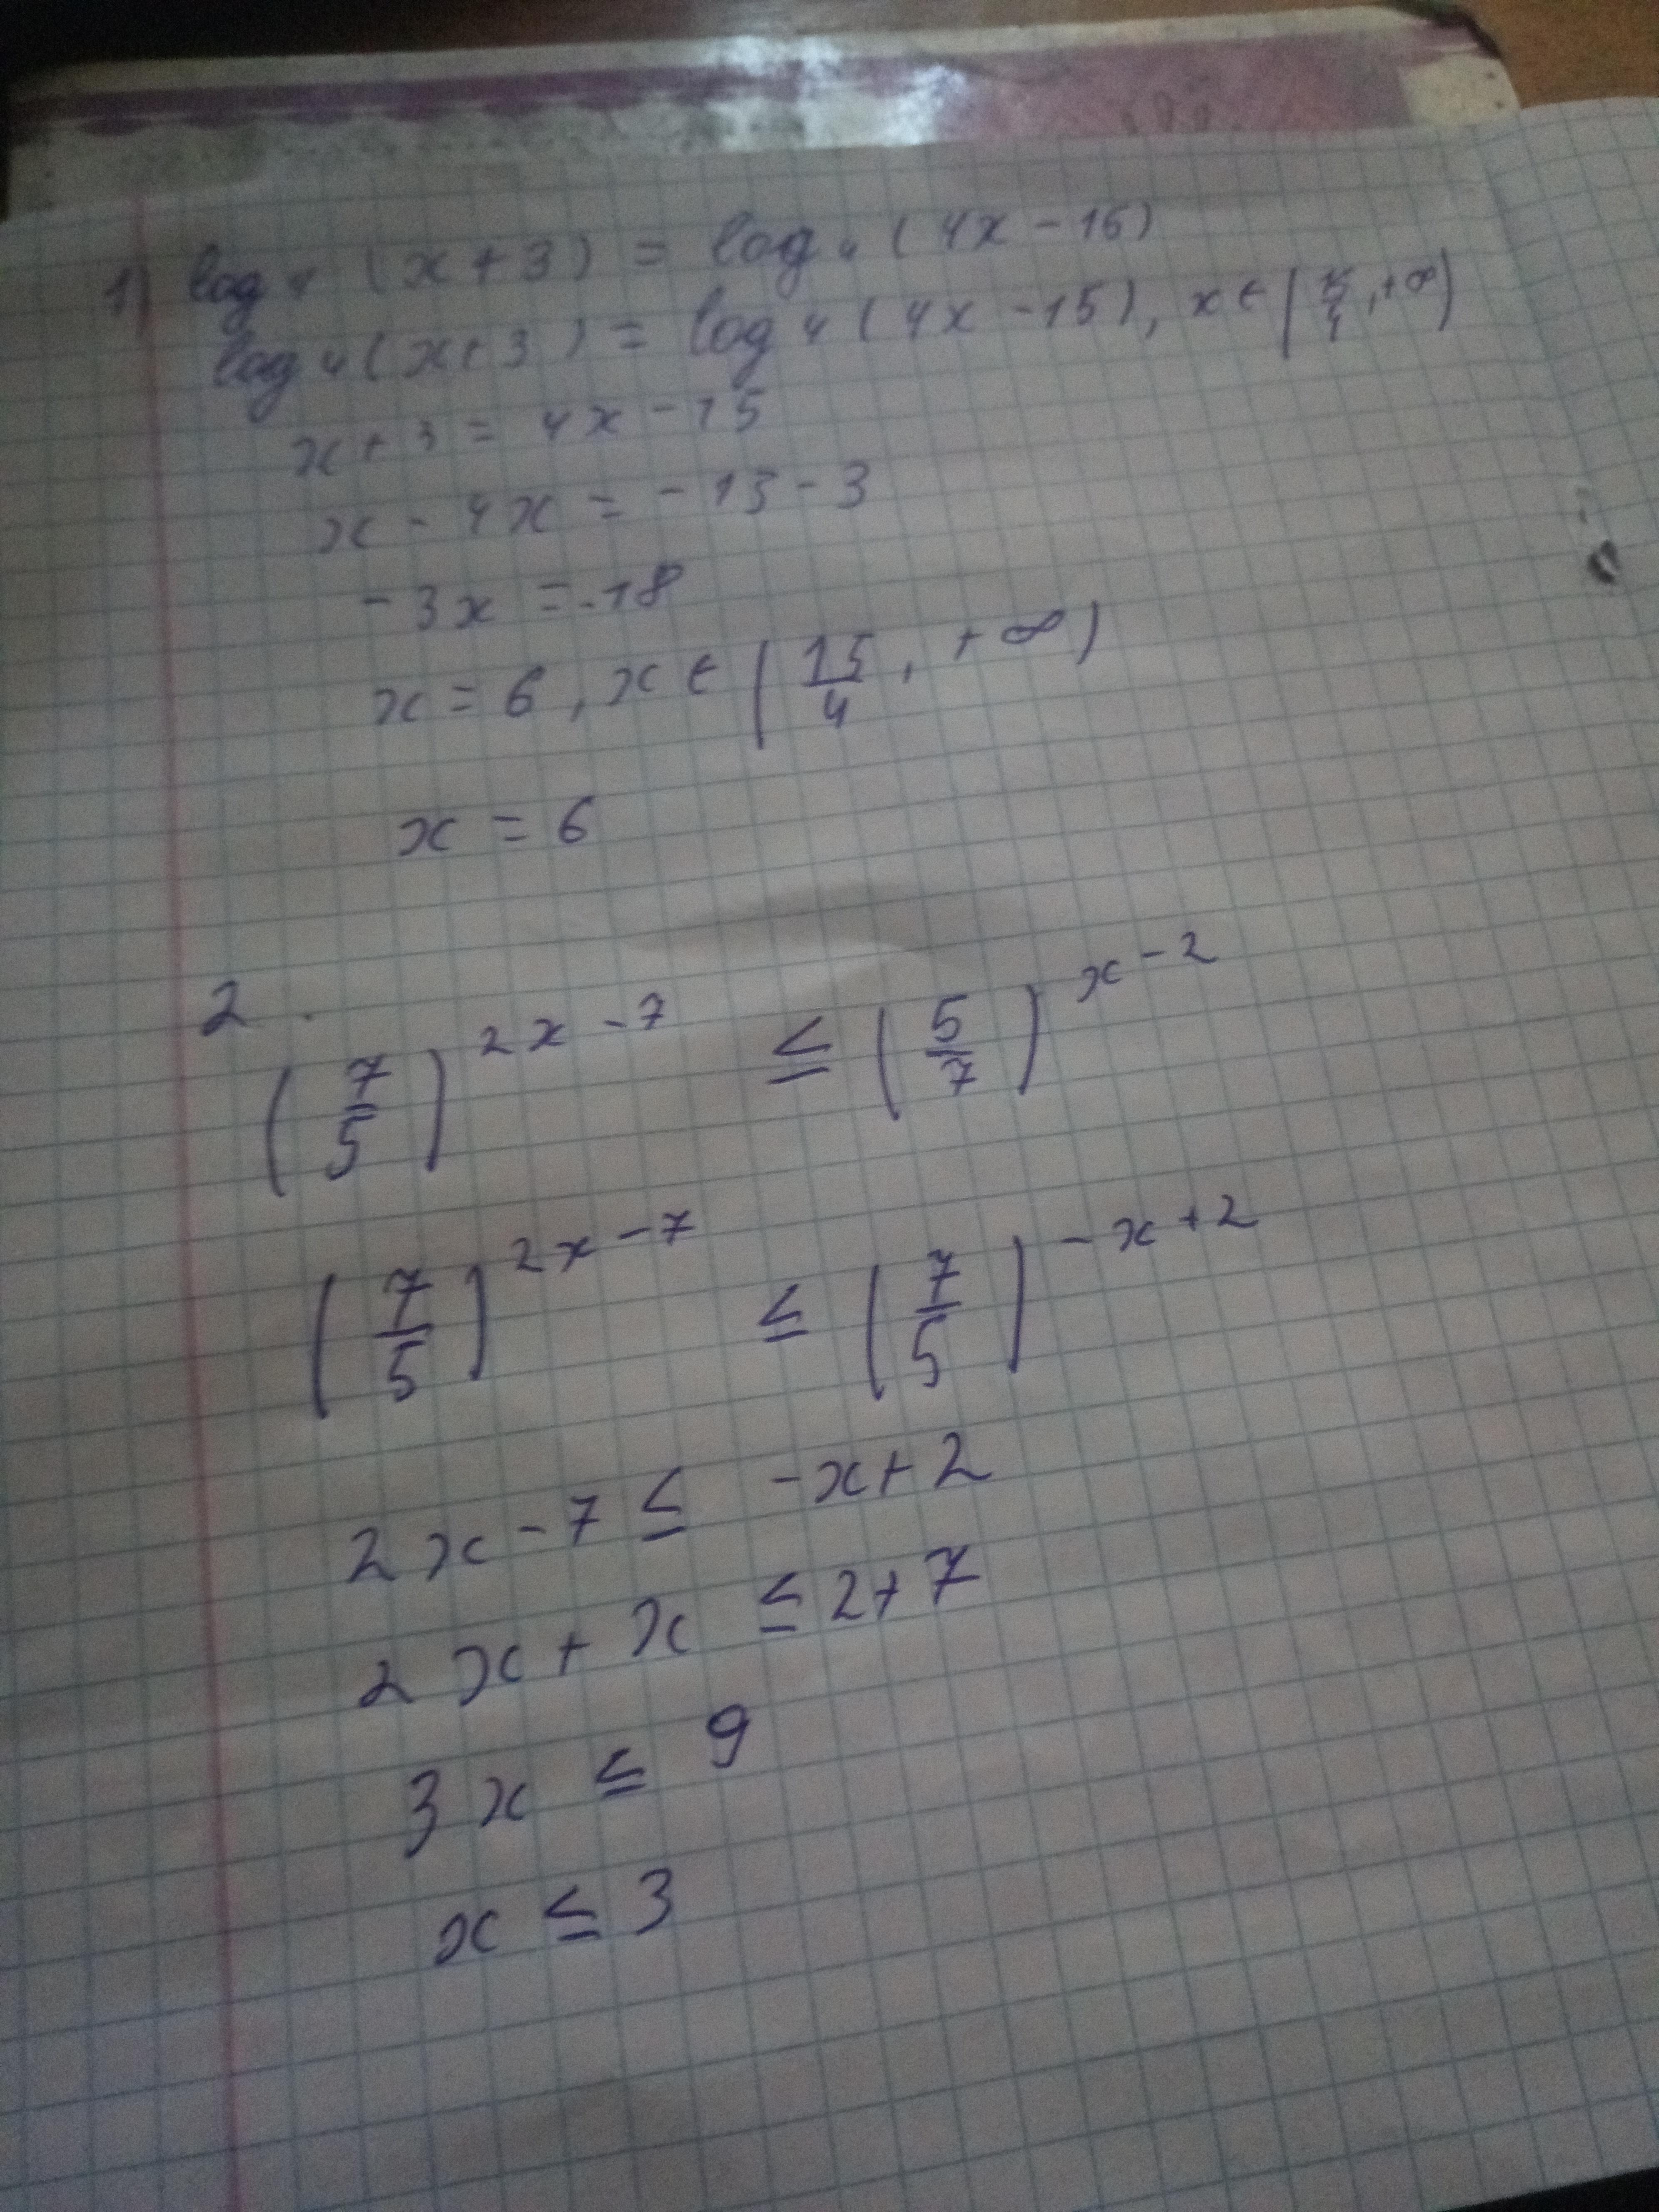 1) log₄ (x+3) = log₄ (4x-15)
log₄(x+3) = log₄(4x-15), x∈(15/4, +∞)
x+3 = 4x-15
x - 4x = -15-3
-3x = -18
x = 6, x ∈ (15/4, +∞)
x = 6
2.
(7/5)^(2x-7) ≤ (5/7)^(x-2)
(7/5)^(2x-7) ≤ (7/5)^(-x+2)
2x-7 ≤ -x+2
2x + x ≤ 2+7
3x ≤ 9
x ≤ 3